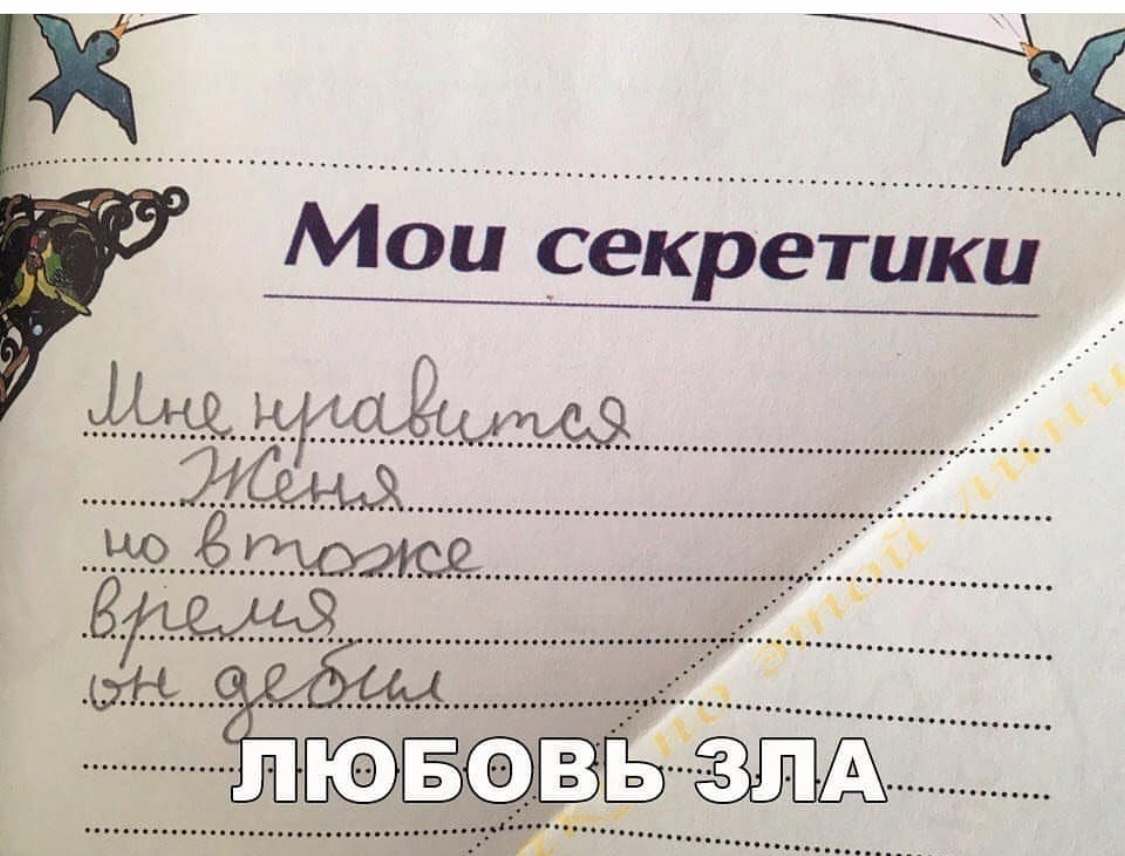 Мои секретики
Мне нравится
Женя
но в тоже
время
он дебил
ЛЮБОВЬ ЗЛА
по этой линии